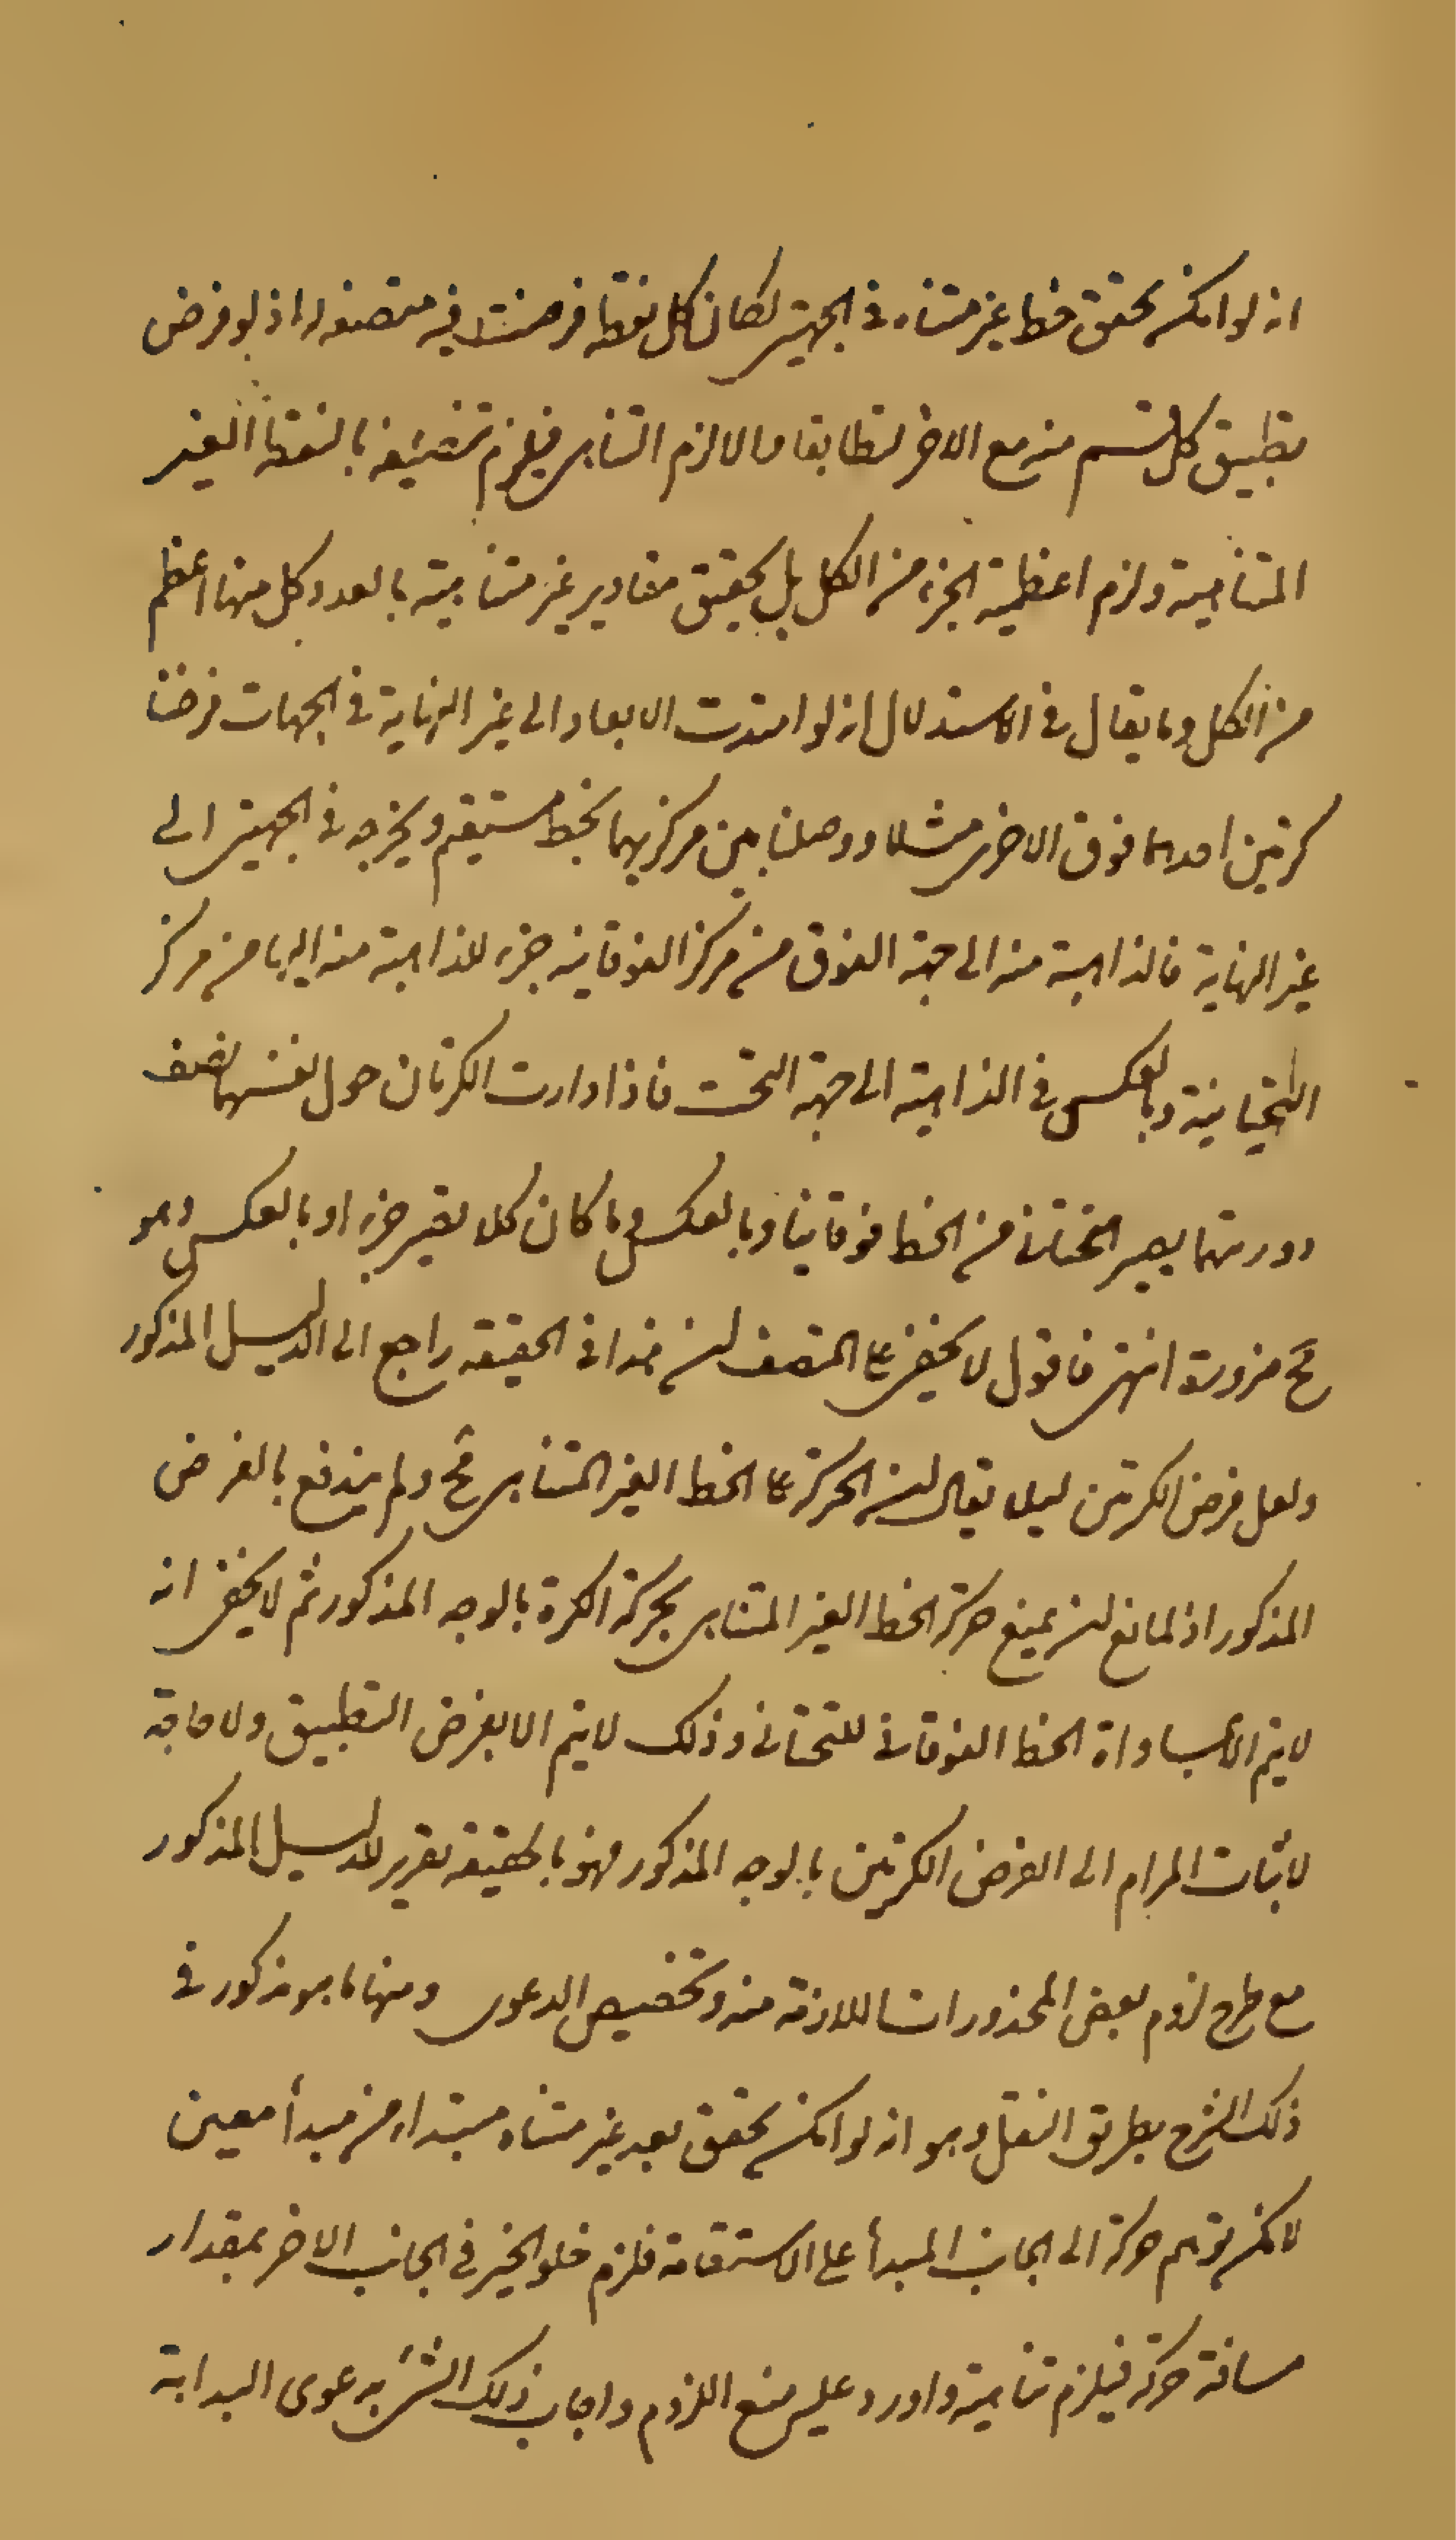 انه لو امكن تحقق خط غير متناه فى الجهتين لكان كل نقطة فرضت فيه منصفه له اذ لو فرض
تطبيق كل قسم منه مع الاخر لتطابقا والا لزم التناهى فيلزم تنصيفه بالنقط الغير
المتناهية ولزم اعظمية الجزء من الكل بل تحقق مقادير غير متناهية بالعدد وكل منها اعظم
من الكل وما يقال فى الاستدلال انه لو امتدت الابعاد الى غير النهاية فى الجهات فرضنا
كرتين احديهما فوق الاخرى مثلا ووصلنا بين مركزيهما بخط مستقيم ويخرجه فى الجهتين الى
غير النهاية فالذاهبة منه الى جهة الفوق من مركز الفوقانية جزء للذاهبة منه اليها من مركز
التحتانية وبالعكس فى الذاهبة الى جهة التحت فاذا دارت الكرتان حول نفسهما نصف
دورتهما يصير التحتانى من الخط فوقانيا وبالعكس وما كان كلا يصير جزء او بالعكس وهو
مح ضرورة انتهى فاقول لا يخفى على المنصف ان هذا فى الحقيقة راجع الى الدليل المذكور
ولعل فرض الكرتين ليلا يقال ان الحركة على الخط الغير المتناهى مح ولم يندفع بالفرض
المذكور اذ لمانع ان يمنع حركة الخط الغير المتناهى بحركة الكرة بالوجه المذكور ثم لا يخفى انه
لا يتم الا بمساواة الخط الفوقانى للتحتانى وذلك لا يتم الا بفرض التطبيق ولا حاجة
لاثبات المرام الى الفرض الكرتين بالوجه المذكور فهو بالحقيقة تقرير للدليل المذكور
مع طرح لزوم بعض المحذورات اللازمة منه وتخصيص الدعوى ومنها ما هو مذكور فى
ذلك الشرح بطريق النقل وهو انه لو امكن تحقق بعد غير متناه مبتداء من مبدأ معين
لامكن توهم حركة الى الجانب المبدأ على الاستقامة فلزم خلو الحيز فى الجانب الاخر بمقدار
مسافة حركة فيلزم تناهية واورد عليه منع اللزوم واجاب ذلك الش بدعوى البداهة